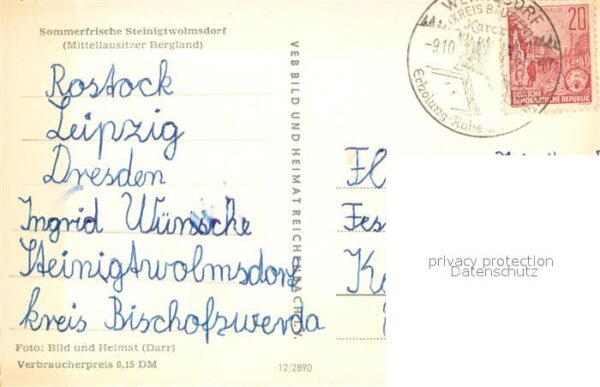 Sommerfrische Steinigtwolmsdorf
(Mittellausitzer Bergland)
Rostock
Leipzig
Dresden
Ingrid Wünsche
Steinigtwolmsdorf
kreis Bischofswerda
Foto: Bild und Heimat (Darr)
Verbraucherpreis 0,15 DM
12/2890
VEB BILD UND HEIMAT REICHENBACH
KREIS BAUTZEN
-9.10
Erholung-Ruhe
20
DEUTSCHE
DEMOKRATISCHE REPUBLIK
privacy protection
Datenschutz